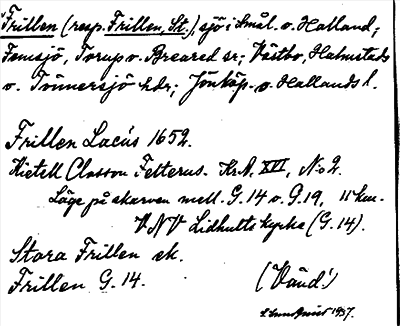 Frillen (resp. Frillen, St.), sjö i Smål. o. Halland;
Femsjö, Torup o. Breared sr; Västbo, Halmstads
o. Tönnersjö hdr; Jönköp. o. Hallands l.
Frillen Lacús 1652.
Kietell Classon Felterus. KrA. XVI, No 2.
Läge på skarven mell. G.14 o. G.19, 11 km.
VNV Lidhults kyrka (G.14).
Stora Frillen ek.
Frillen G. 14.
(Vänd!)
1937.